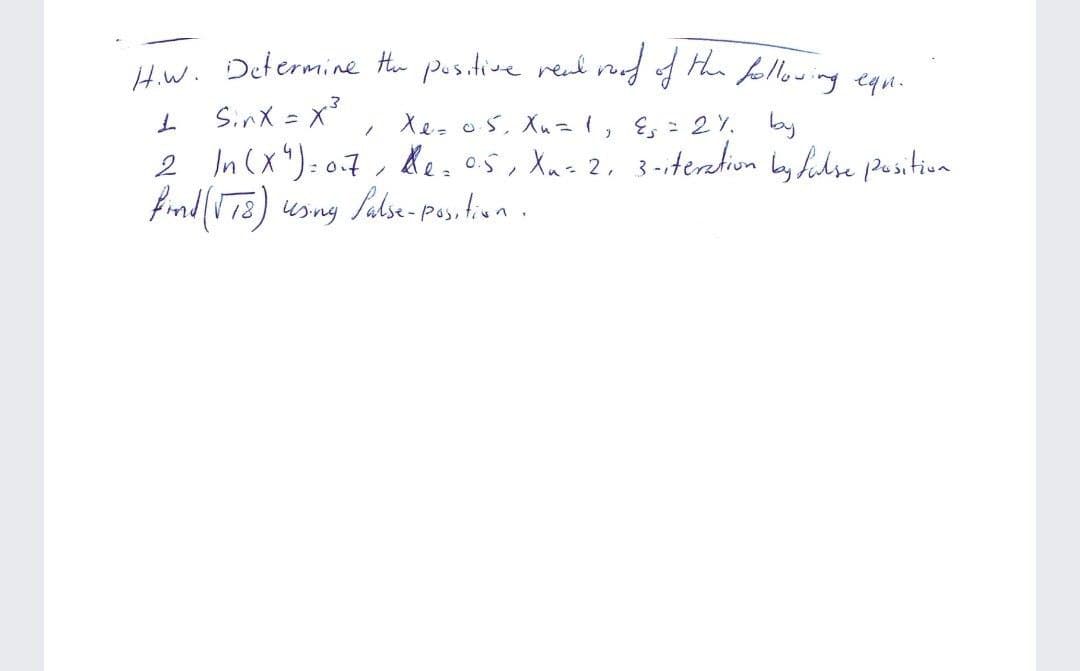 H.W. Determine the positive real root of the following eqn.
1 Sinx = x³, Xe= 0.5, Xu= 1, Es = 2% by
2 ln(x⁴)=0.7, Xe= 0.5, Xu= 2, 3-iteration by false position
find(√18) using false-position.